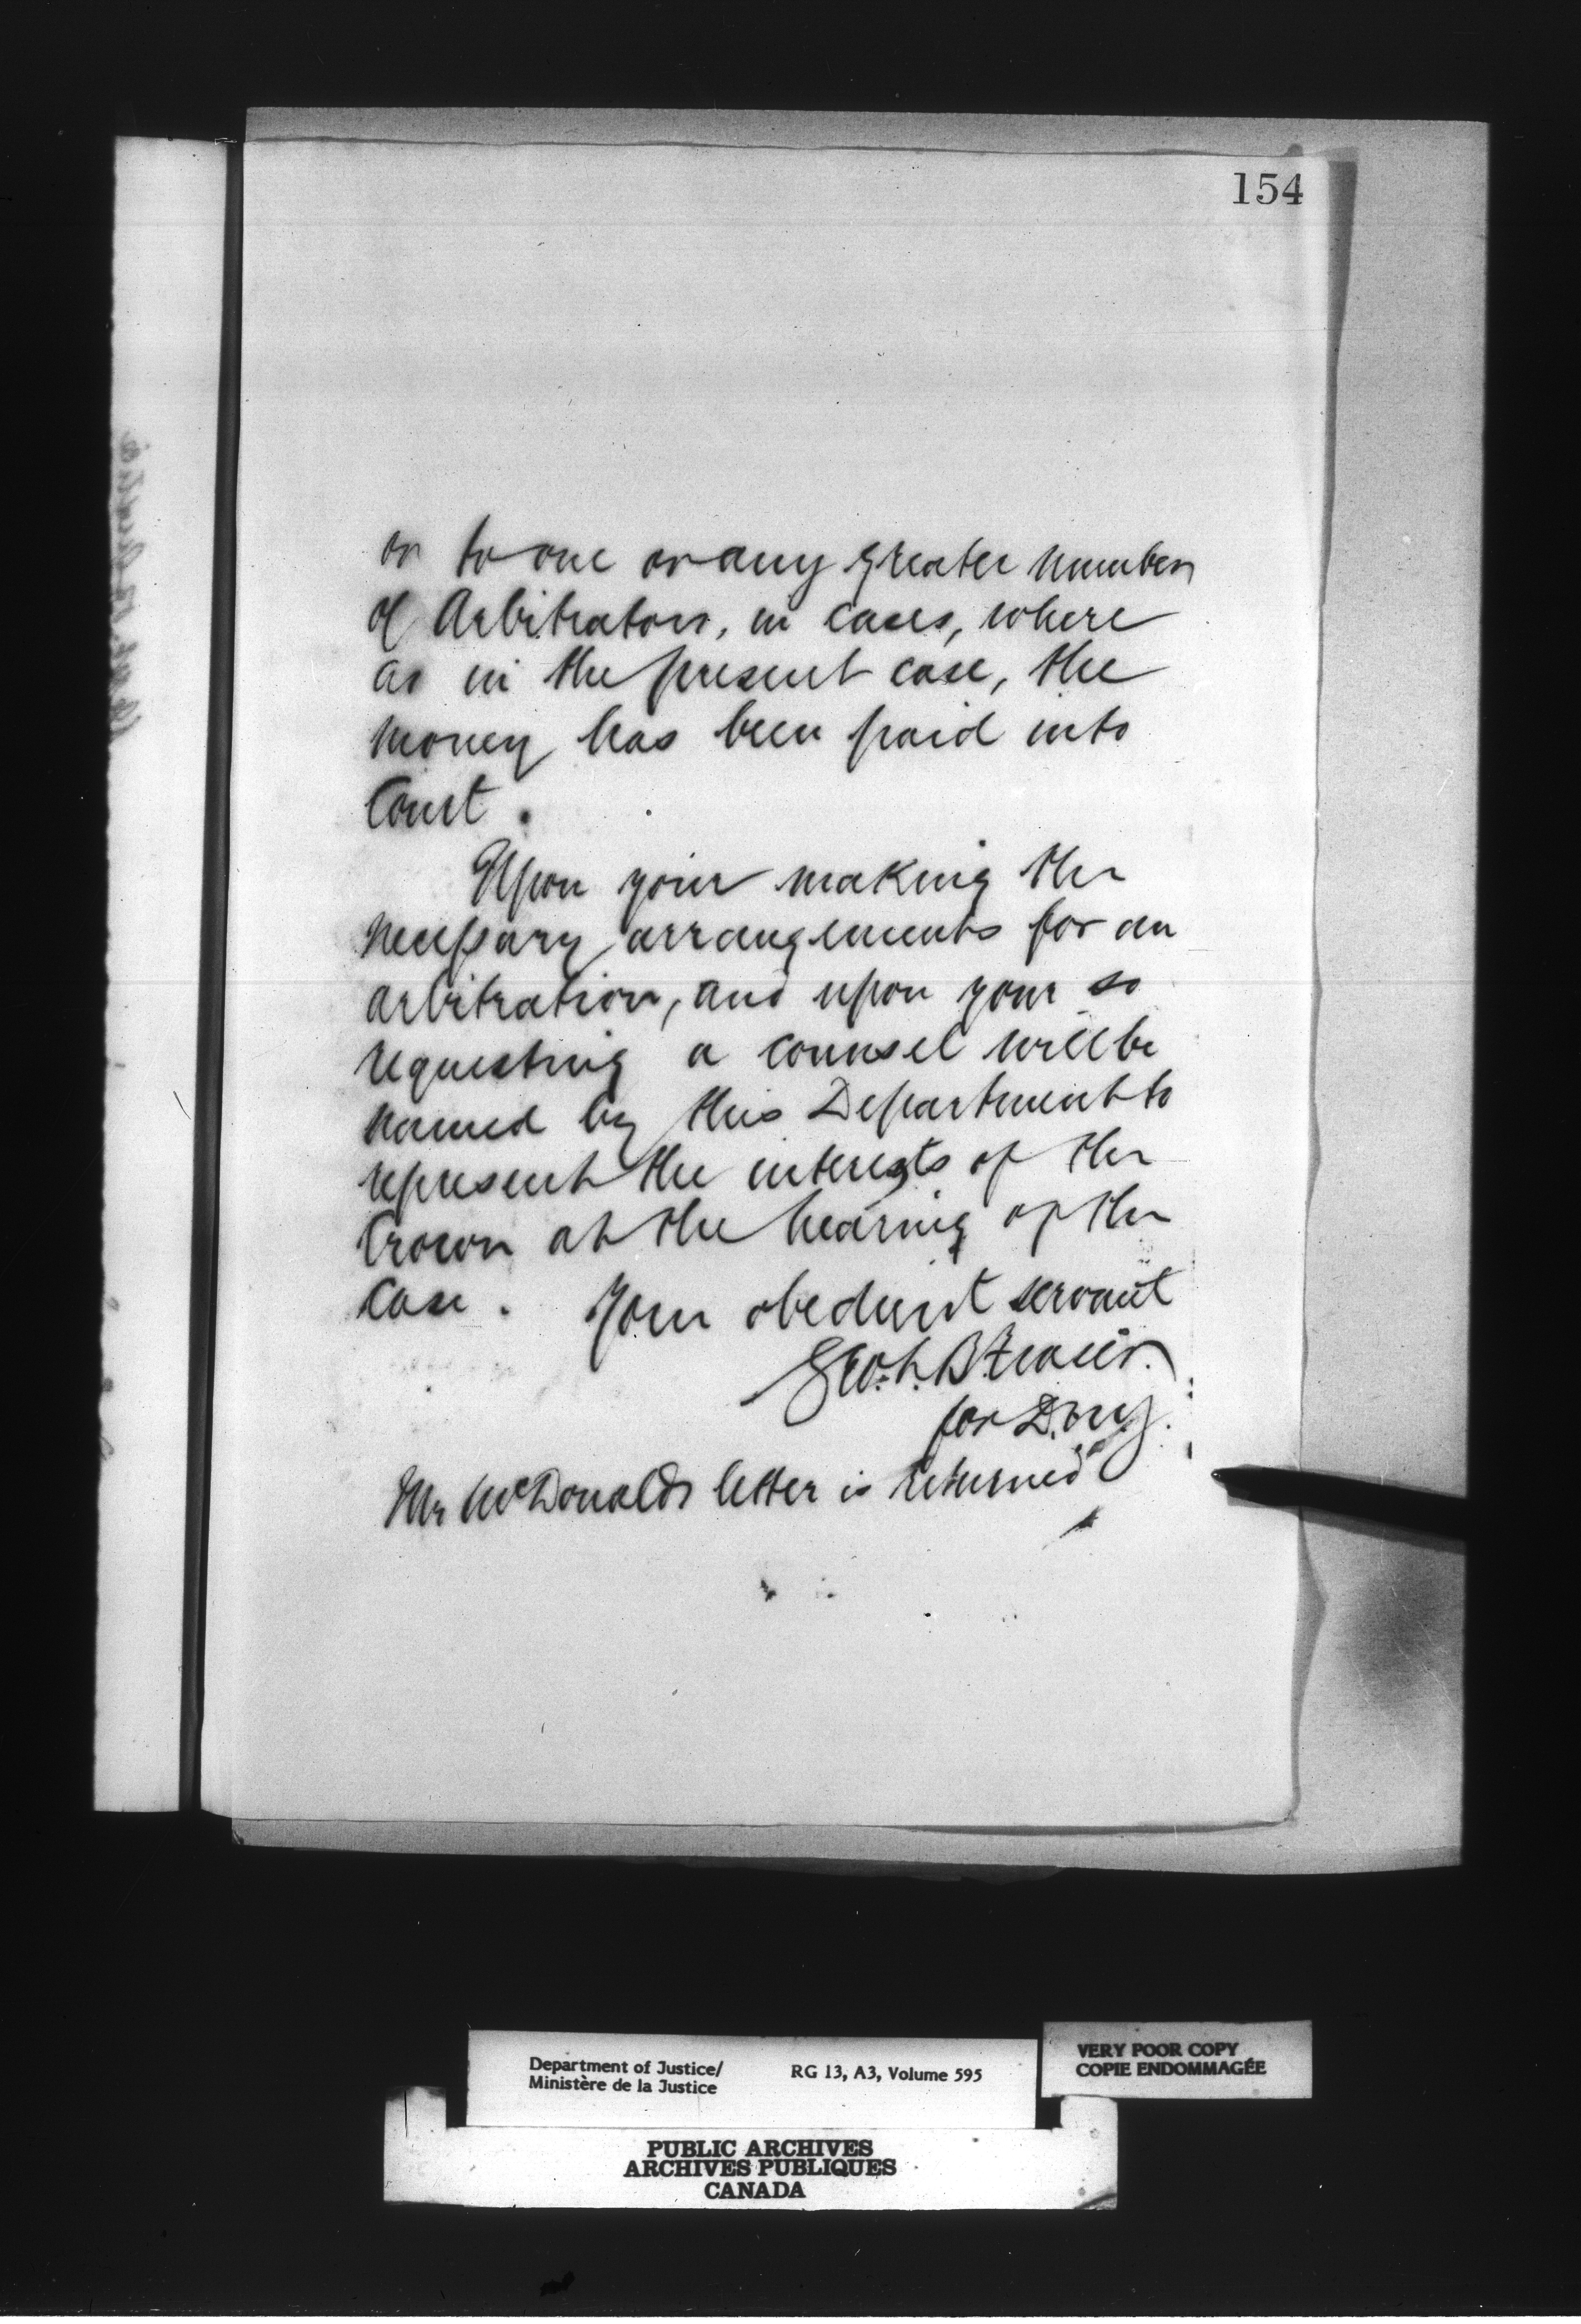 154
or to one or any greater number
of Arbitrators, in cases, where
as in the present case, the
money has been paid into
Court.
Upon your making the
necessary arrangements for an
arbitration, and upon your so
requesting a counsel will be
named by this Department to
represent the interests of the
Crown at the hearing of the
case. Your obedient servant
Geo. L. B. Fraser.
for D.M.J.
Mr McDonalds letter is returned
Department of Justice/
Ministère de la Justice
RG 13, A3, Volume 595
VERY POOR COPY
COPIE ENDOMMAGÉE
PUBLIC ARCHIVES
ARCHIVES PUBLIQUES
CANADA